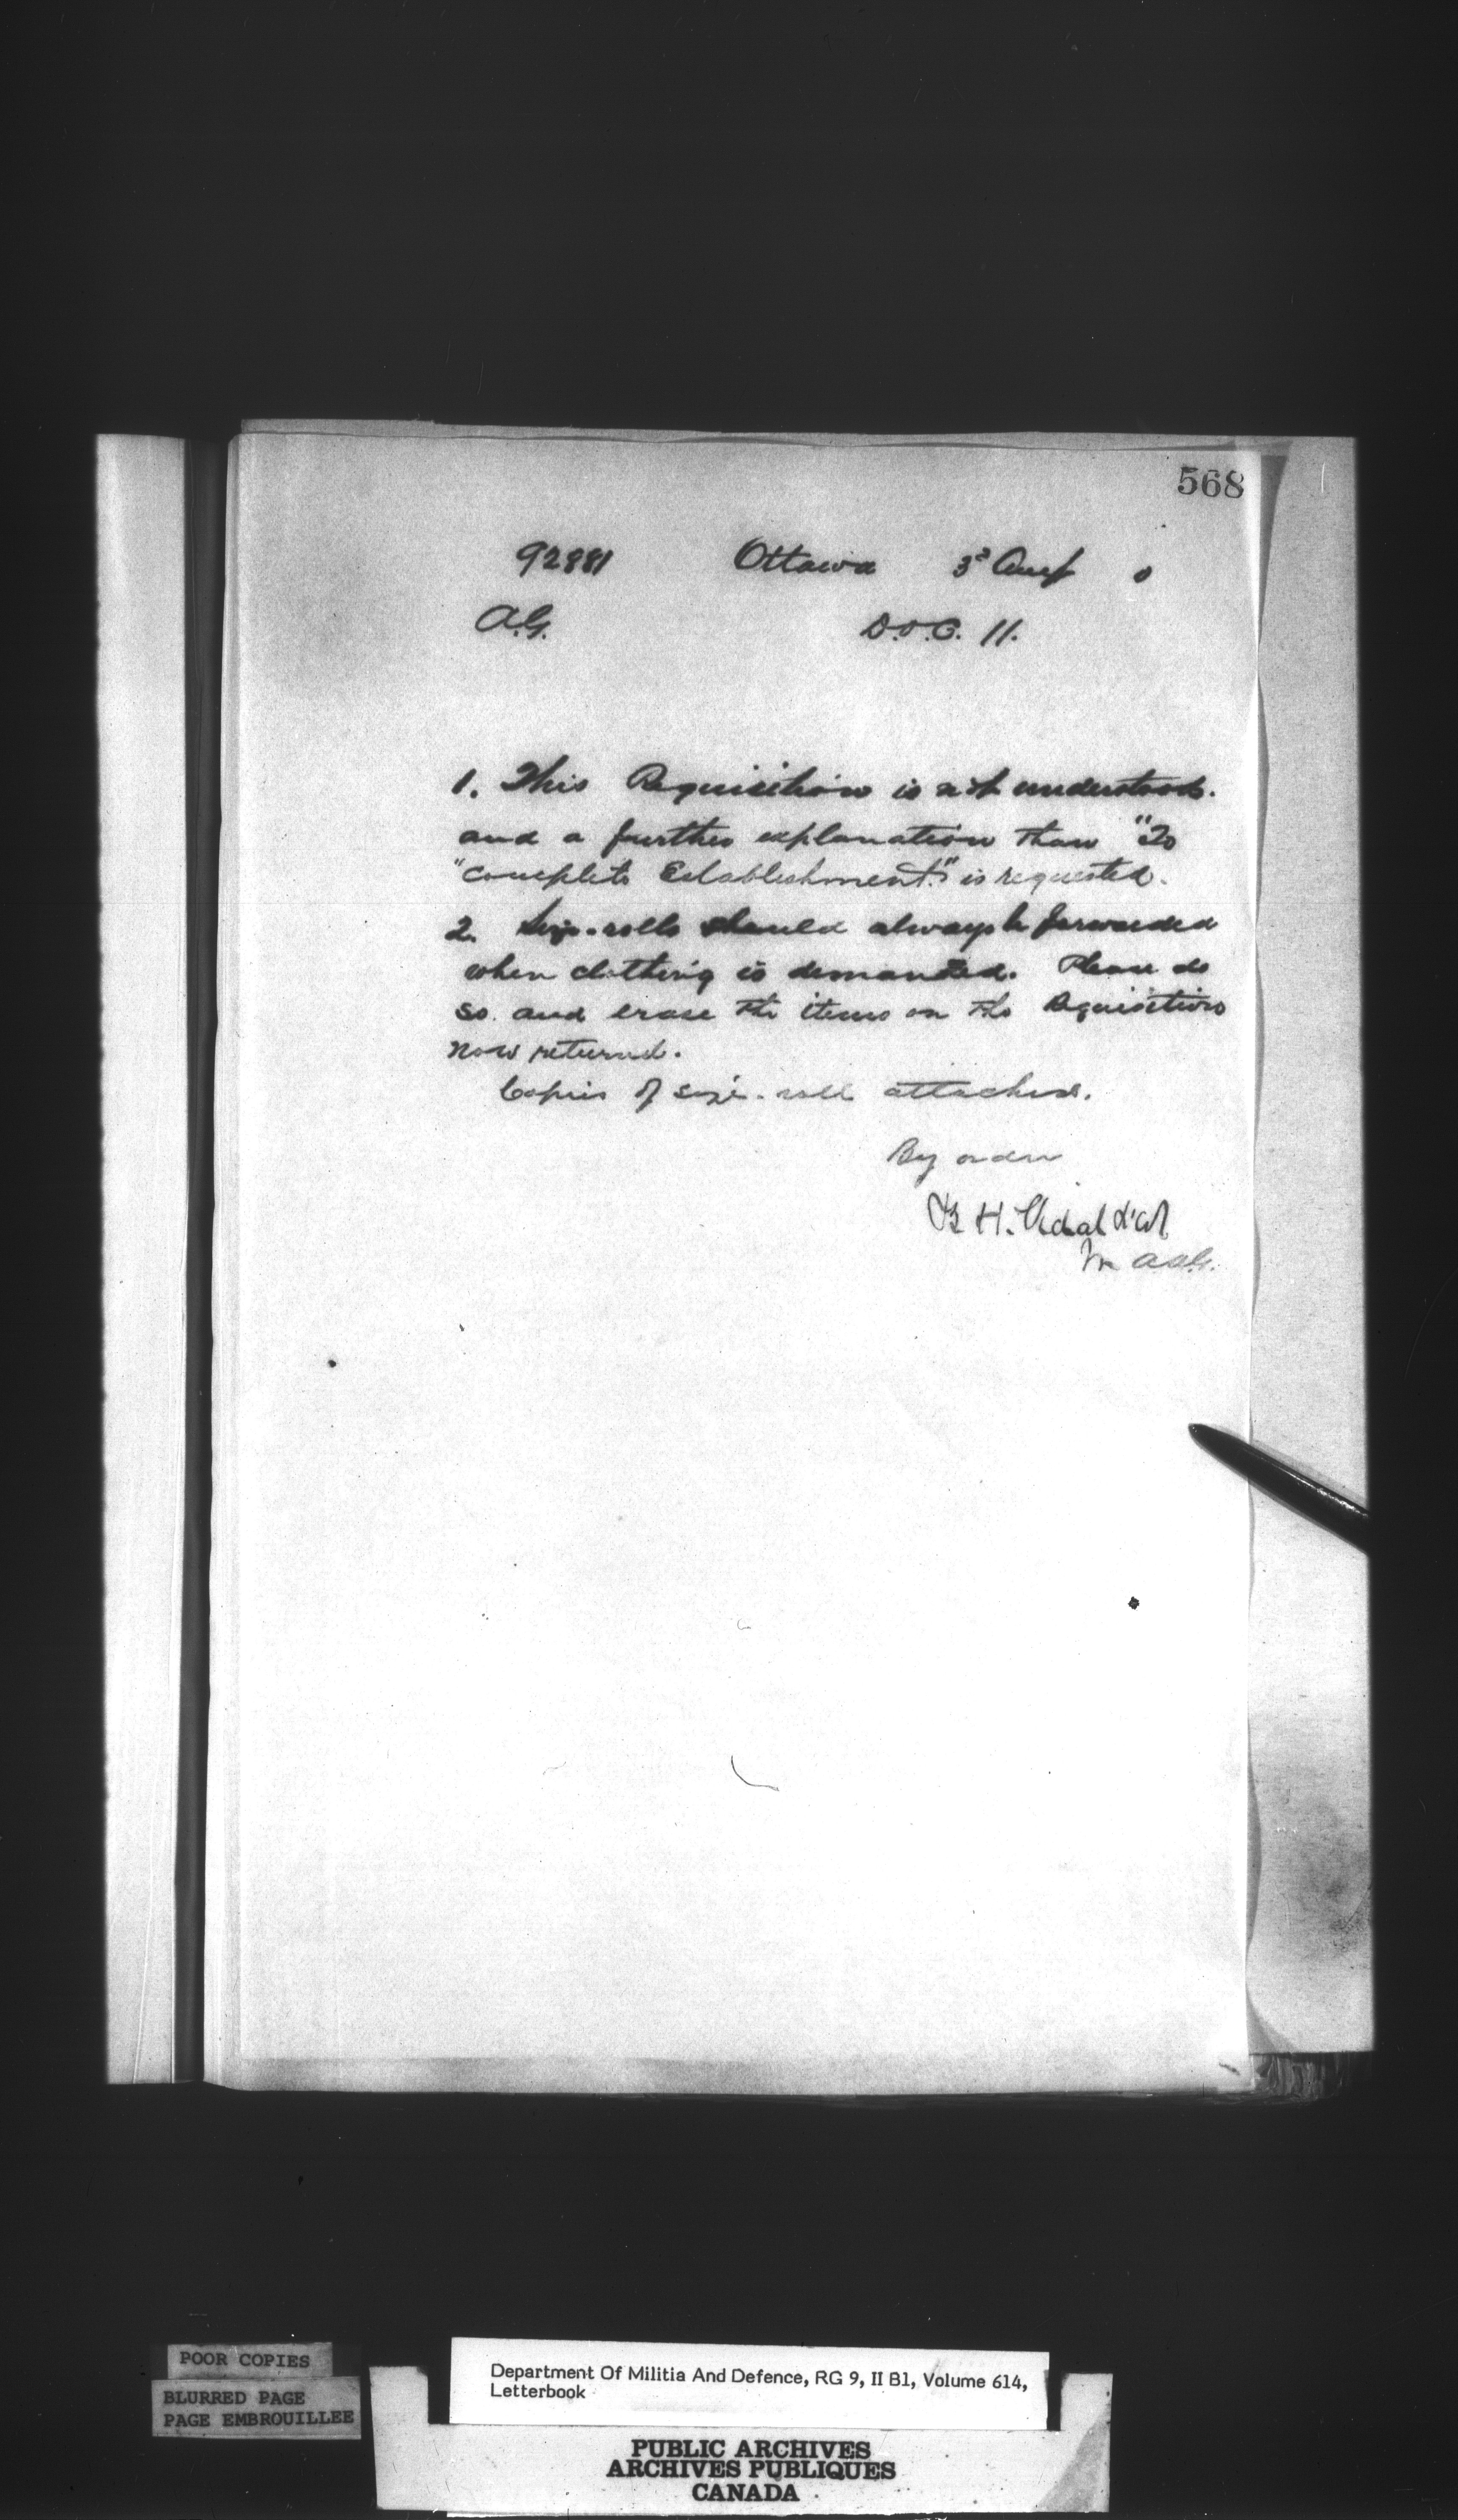 568
92881 Ottawa 3d Augt 0
A.G. D.O.C. 11.
1. This Requisition is not understood.
and a further explanation than "To
"complete Establishment." is requested.
2. Size-rolls should always be forwarded
when clothing is demanded. Please do
so and erase the items on the Requisition
now returned.
Copies of size-roll attached.
By order
B H. Vidal Lt Col
A.A.G.
POOR COPIES
BLURRED PAGE
PAGE EMBROUILLEE
Department Of Militia And Defence, RG 9, II B1, Volume 614,
Letterbook
PUBLIC ARCHIVES
ARCHIVES PUBLIQUES
CANADA